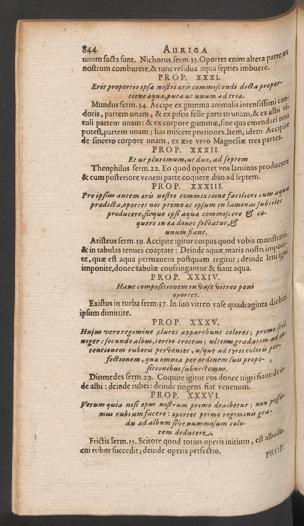 844 AURIGA
unum facta sunt. Nichorus serm.35. Oportet enim altera parte æris
nostrum comburere, & tunc residua aqua septies imbuere.
PROP. XXXI.
Erit proportio ipsa nostri æris commiscendi dicta propor-
tione aqua, puta ut unum ad tria.
Mundus serm.14. Accipe ex gumma animalis intensissimi can-
doris, partem unam; & ex ficus felle partem unam, &
tali partem unam: & ex corpore gumma, sine qua emendari non
potest, partem unam; has miscete portiones. Item, idem Accipite
de sincero corpore unam, ex ære vero Magnesiæ tres partes.
PROP. XXXII.
Et ut plurimum, ut duo, ad septem
Theophilus serm.22. Eo quod oportet vos laminas producere
& cum posteriore veneni parte coquere duo ad septem.
PROP. XXXIII.
Pro ipsius autem æris nostre commixtione faciliori cum aqua
prædicta, oportet nos primo æs ipsum in laminas subtiles
producere, sicque ipsi aqua commiscere & co-
quere in ea donec solvatur, &
unum fiant.
Aristeus serm.19. Accipite igitur corpus quod vobis monstravi,
& in tabulas tenues coaptate: Deinde aquæ maris nostri imponi-
te, quæ est aqua permanens postquam regitur; deinde leni igni
imponite, donec tabulæ confringantur & fiant aqua.
PROP. XXXIV.
Hanc compositionem in vase vitreo poni
oportet.
Existus in turba serm.37. In suo vitreo vase quadraginta diebus
ipsum dimittite.
PROP. XXXV.
Hujus vero regimine plures apparebunt colores; primo
niger: secundo albus, tertio croceus; ultimo gradatim ad
tentionem ruboris perveniet, usque ad tyrii coloris per-
fectionem, qua omnia per ordinem suis propo-
sitionibus subnectemus.
Diomedes serm.29. Coquite igitur eos donec nigri fiant: dein-
de albi: deinde rubei: deinde tingens fiat venenum.
PROP. XXXVI.
Verum quia nisi opus nostrum primo dealbetur; non possu-
mus rubrum facere: oportet primo regiminis gra-
du ad album sive nummosum colo-
rem deducere.
Frictis serm.15. Scitote quod totius operis initium, est albedo,
cui rubor succedit; deinde operis perfectio.
PROP.